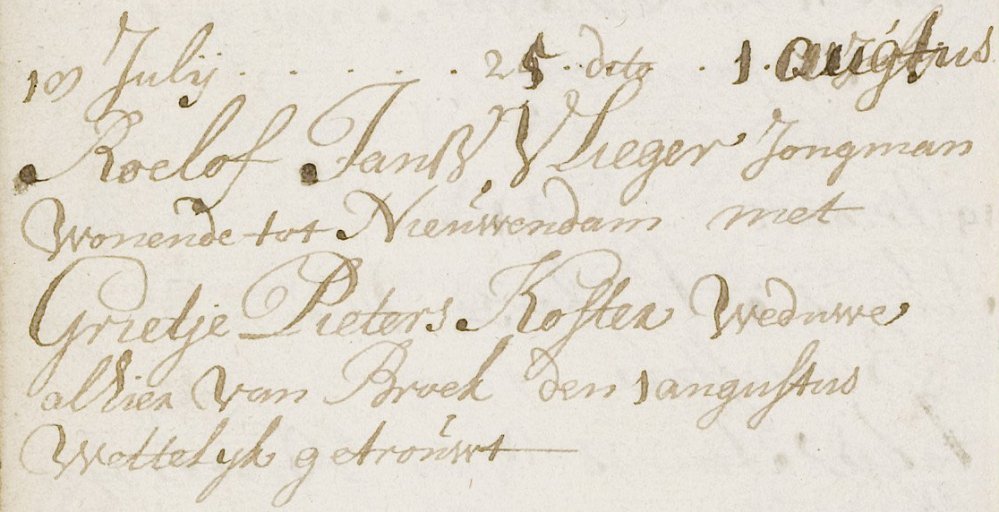 18 Julij . . . . . 25 . dito . 1 . augustus
Roelof Janß Vlieger Jongman
Wonende tot Nieuwendam met
Grietje Pieters Koster Weduwe
alhier van Broek den 1 augustus
Wettelyk getrouwt